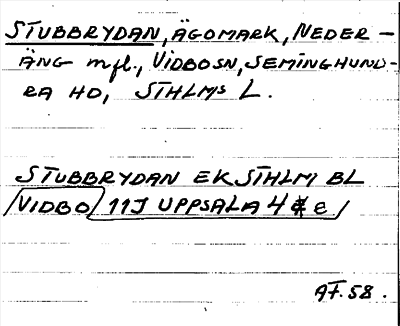 STUBBRYDAN, ÄGOMARK, NEDER-
ÄNG mfl., VIDBO SN, SEMINGHUND-
RA HD, STHLMS L.
STUBBRYDAN EK STHLM BL
VIDBO 11I UPPSALA 4 e
AF. 58.